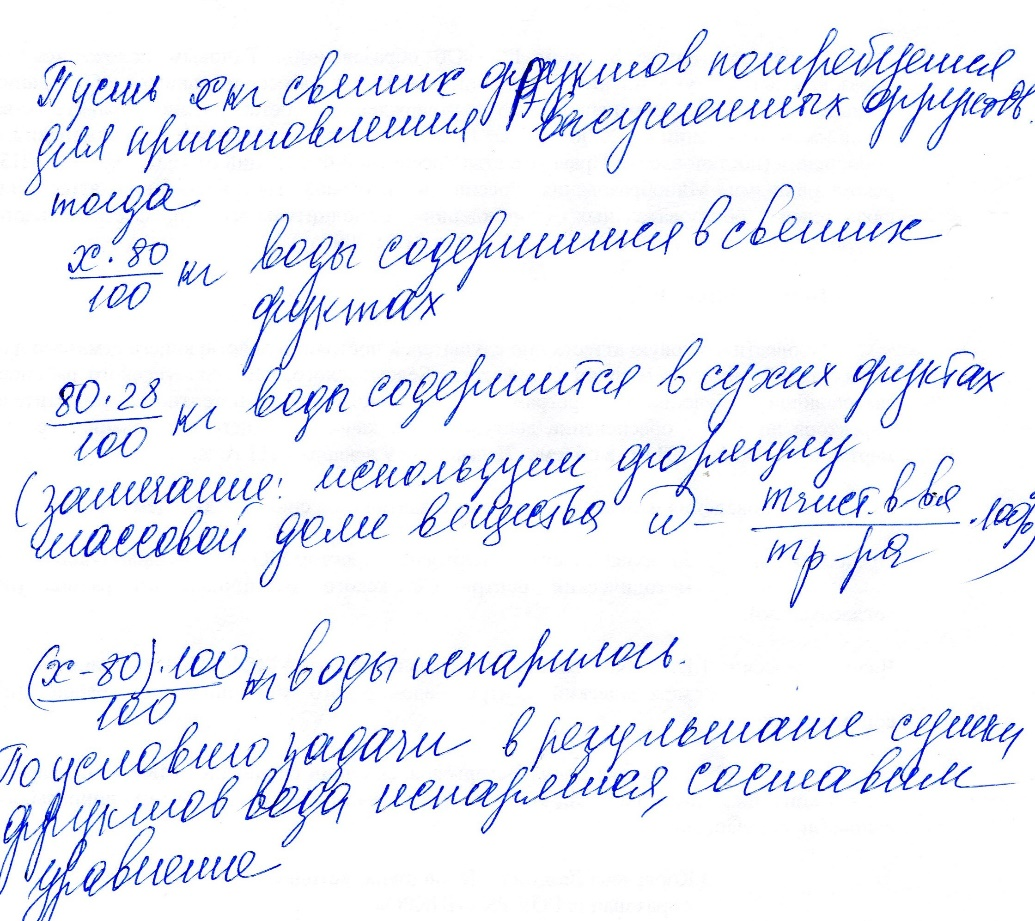 Пусть x кг свежих фруктов потребуется
для приготовления высушенных фруктов.
тогда
x · 80 / 100 кг воды содержится в свежих
фруктах
80 · 28 / 100 кг воды содержится в сухих фруктах
(замечание: используем формулу
массовой доли вещества ω = m чист. в-ва / m р-ра · 100%)
(x - 80) · 100 / 100 кг воды испарилось.
По условию задачи в результате сушки
фруктов вода испаряется, составим
уравнение